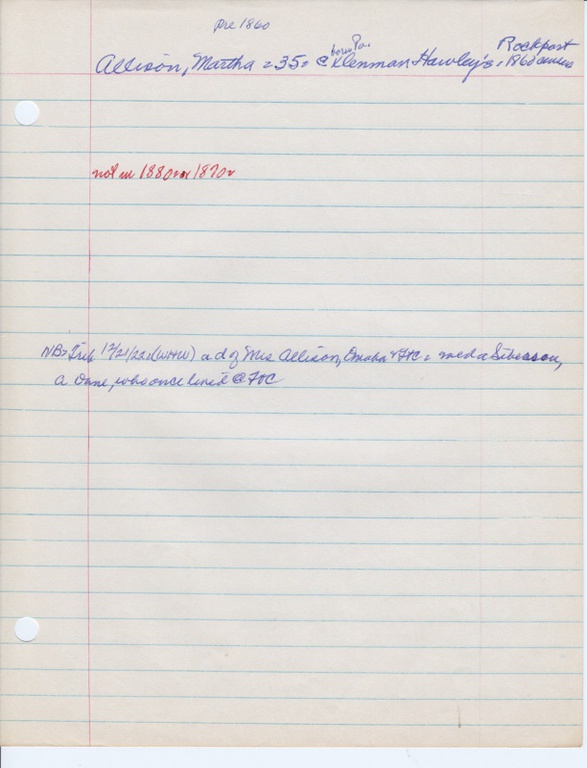 Pre 1860
Rockport
born Pa.
Allison, Martha = 35 = @ Klenman Hawley's, 1860 census
not in 1880 or 1870
NB> Trib 12/21/22 (WHW) a d of Mrs Allison, Omaha & FTC = med a Siberson,
a Dane, who once lived @ FTC